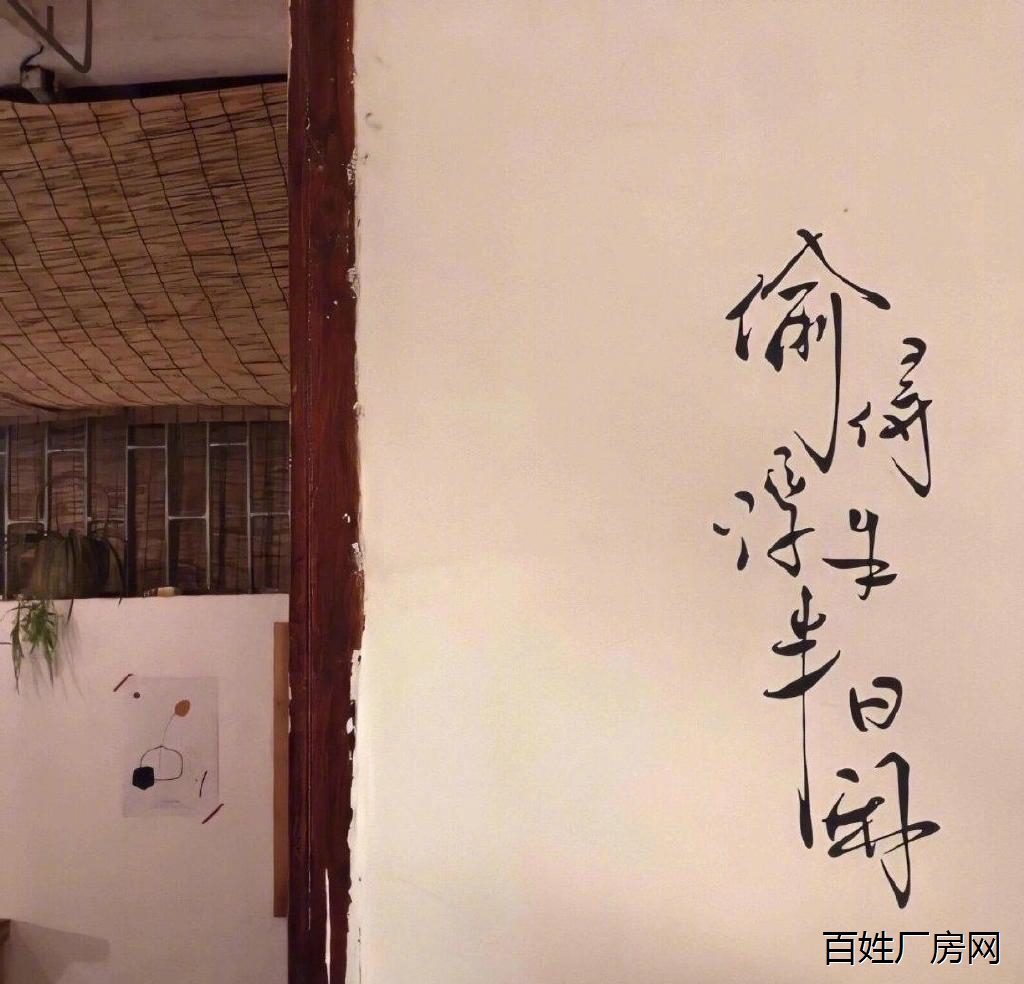 偷得浮生半日闲
百姓厂房网